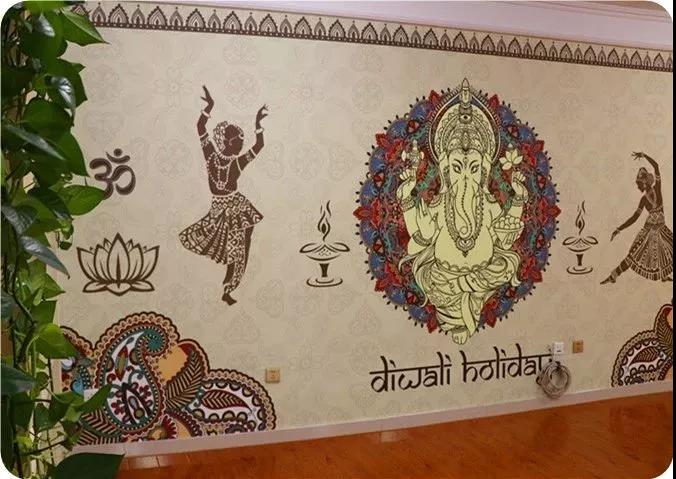 ॐ
diwali holiday